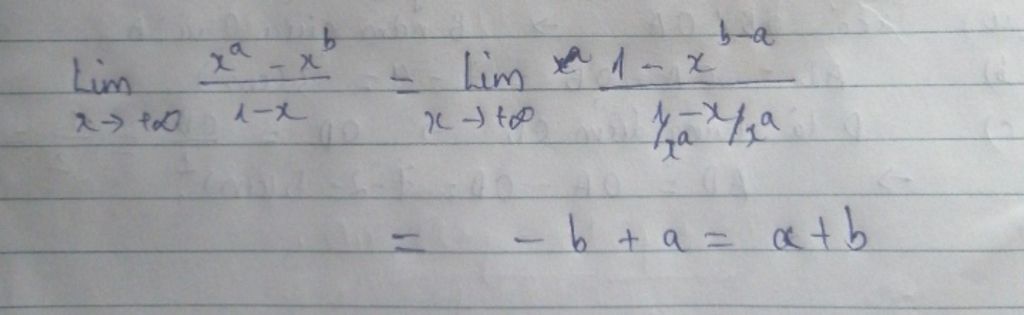 Lim x→+∞ (x^a - x^b)/(1-x) = Lim x→+∞ (1 - x^(b-a))/(1/x^a - x/x^a)
= - b + a = a + b